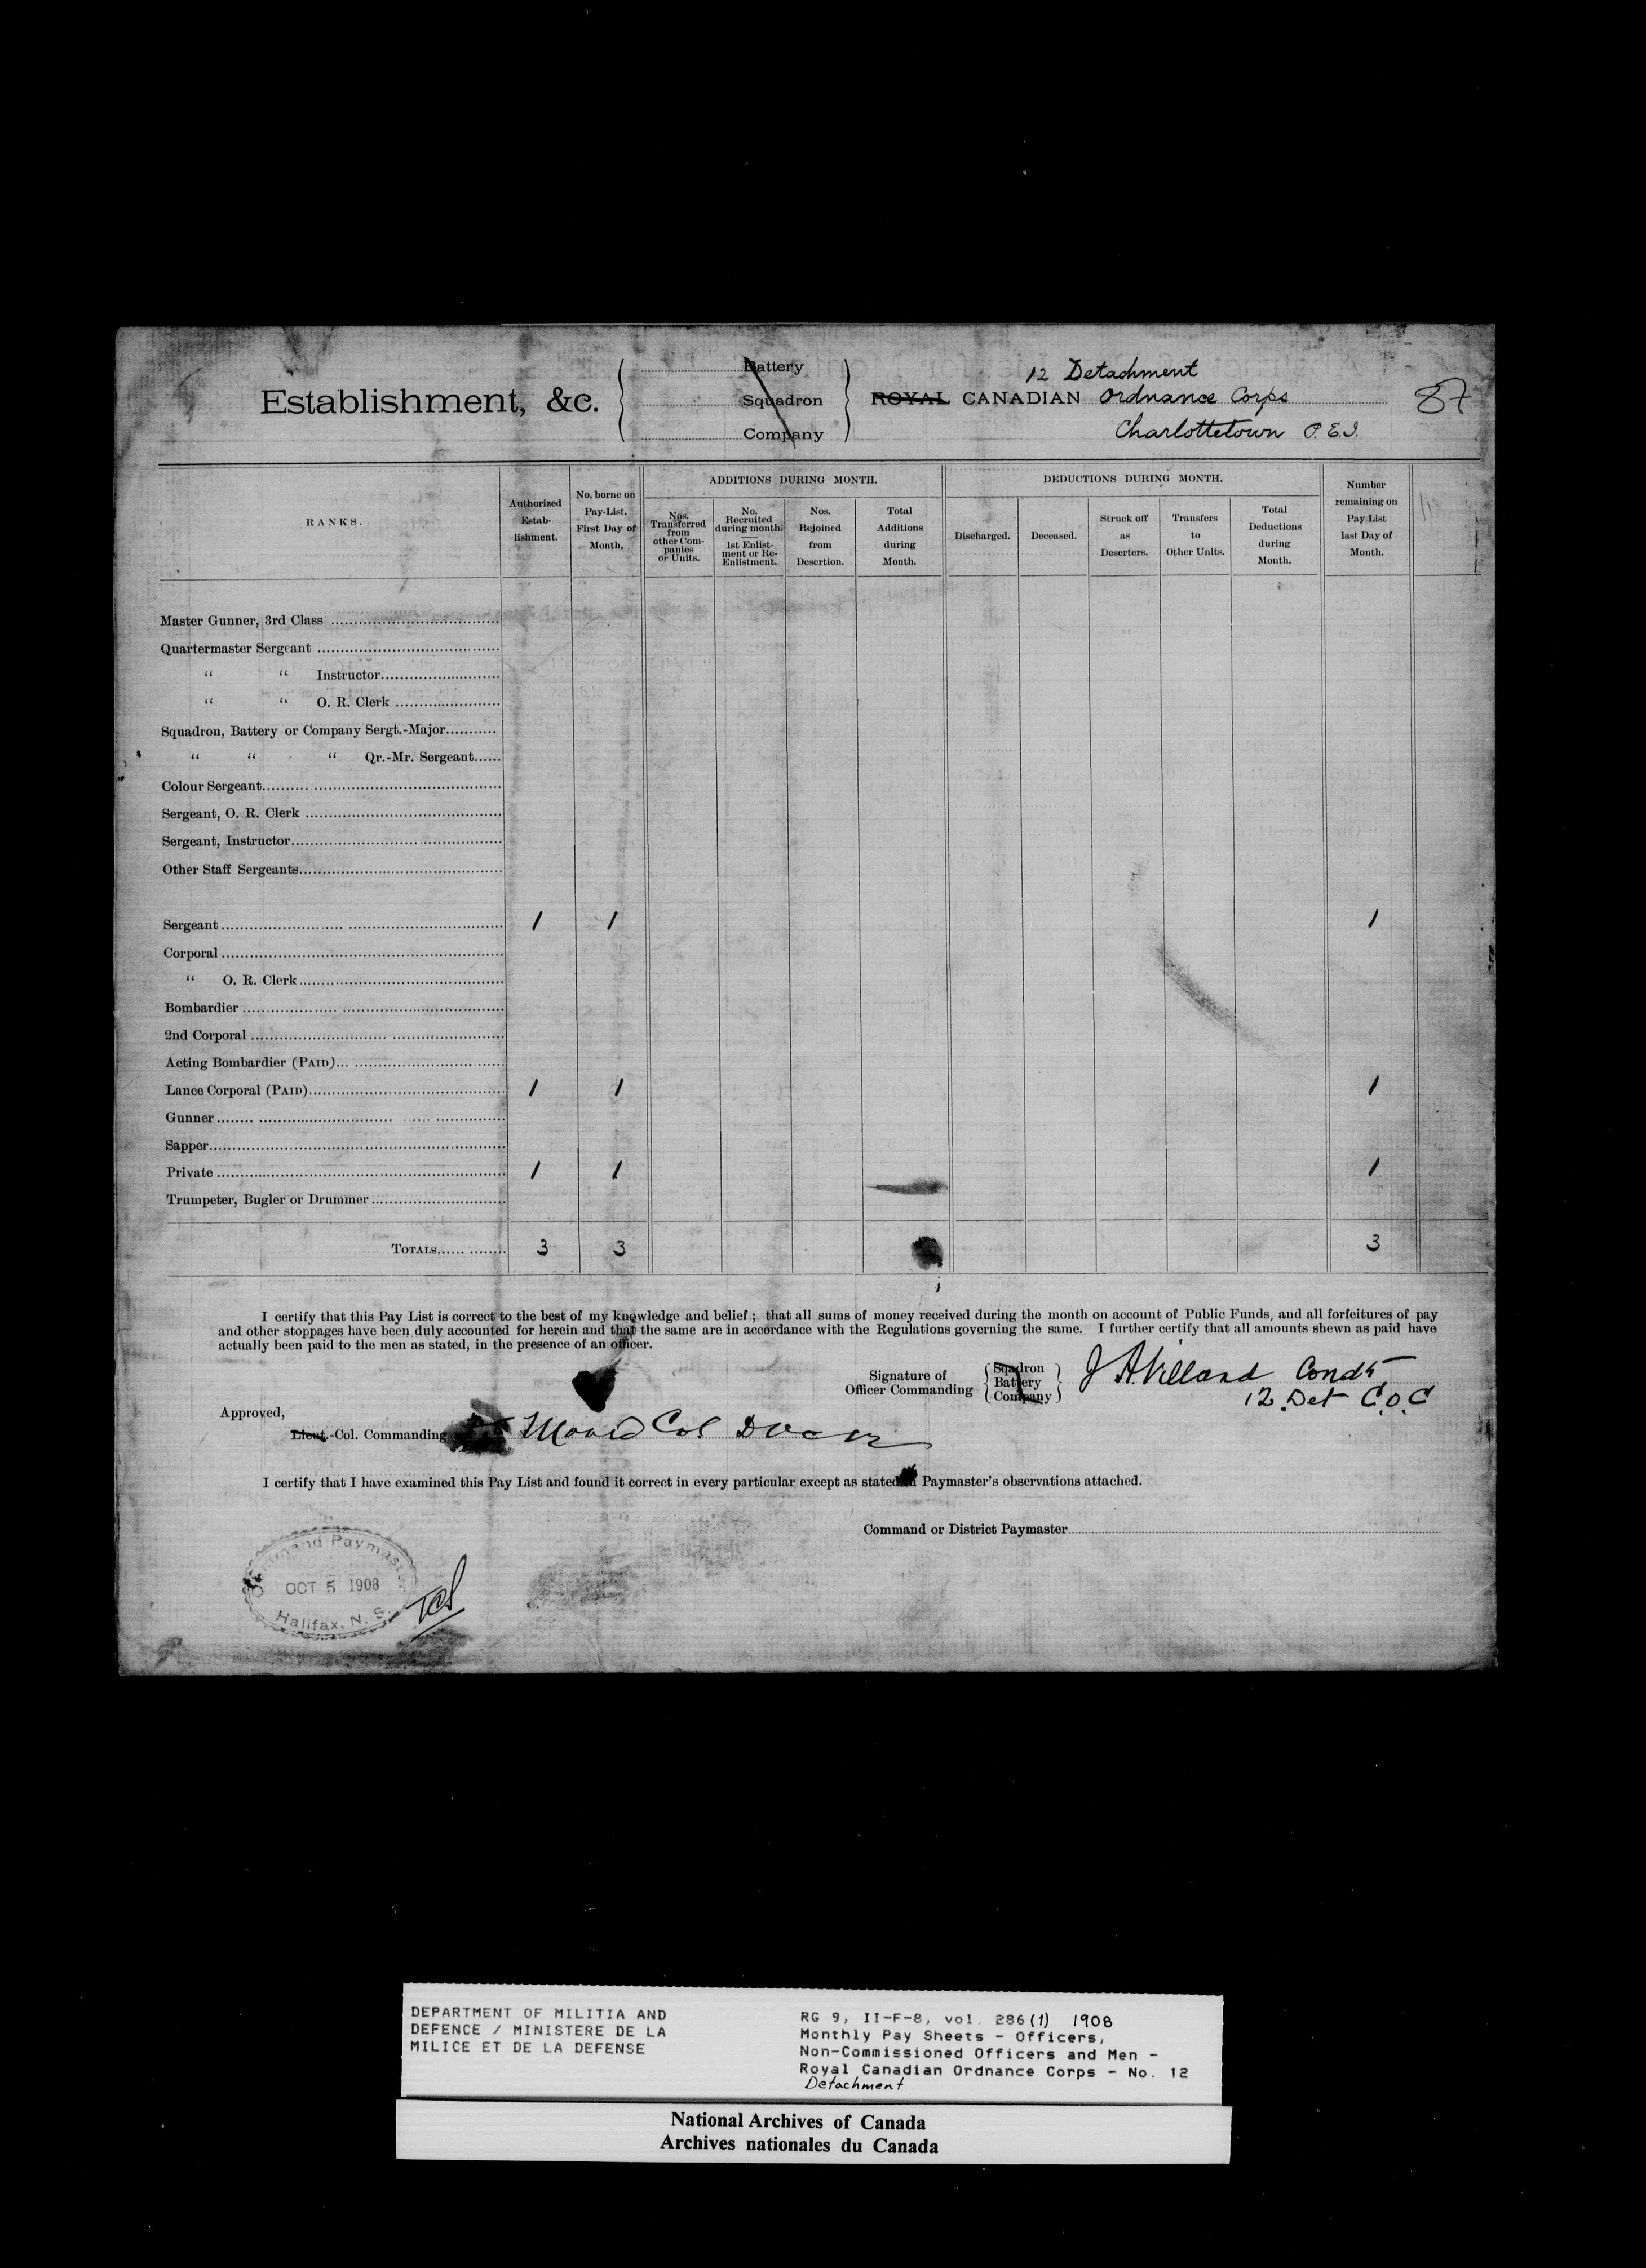 12 Detachment
Establishment, &c. { Battery Squadron Company } ROYAL CANADIAN Ordnance Corps 87
Charlottetown P.E.I.
RANKS.
Authorized Estab-lishment.
No. borne on Pay-List. First Day of Month.
ADDITIONS DURING MONTH.
Nos. Transferred from other Com-panies or Units.
No. Recruited during month. 1st Enlist-ment or Re-Enlistment.
Nos. Rejoined from Desertion.
Total Additions during Month.
DEDUCTIONS DURING MONTH.
Discharged.
Deceased.
Struck off as Deserters.
Transfers to Other Units.
Total Deductions during Month.
Number remaining on Pay List last Day of Month.
Master Gunner, 3rd Class
Quartermaster Sergeant
“ “ Instructor
“ “ O. R. Clerk
Squadron, Battery or Company Sergt.-Major
“ “ “ Qr.-Mr. Sergeant
Colour Sergeant
Sergeant, O. R. Clerk
Sergeant, Instructor
Other Staff Sergeants
Sergeant 1 1 1
Corporal
“ O. R. Clerk
Bombardier
2nd Corporal
Acting Bombardier (PAID)
Lance Corporal (PAID) 1 1 1
Gunner
Sapper
Private 1 1 1
Trumpeter, Bugler or Drummer
TOTALS 3 3 3
I certify that this Pay List is correct to the best of my knowledge and belief; that all sums of money received during the month on account of Public Funds, and all forfeitures of pay
and other stoppages have been duly accounted for herein and that the same are in accordance with the Regulations governing the same. I further certify that all amounts shewn as paid have
actually been paid to the men as stated, in the presence of an officer.
Signature of Officer Commanding { Squadron Battery Company }
12 Det C.O.C
Approved,
Lieut.-Col. Commanding Col
I certify that I have examined this Pay List and found it correct in every particular except as stated in Paymaster's observations attached.
Command or District Paymaster
Command Paymaster
OCT 5 1908
Halifax, N. S.
DEPARTMENT OF MILITIA AND
DEFENCE / MINISTERE DE LA
MILICE ET DE LA DEFENSE
RG 9, II-F-8, vol. 286(1) 1908
Monthly Pay Sheets - Officers,
Non-Commissioned Officers and Men -
Royal Canadian Ordnance Corps - No. 12
Detachment
National Archives of Canada
Archives nationales du Canada